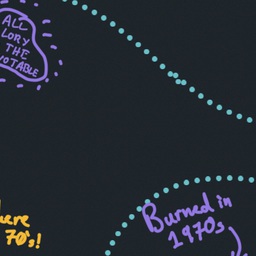 ALL
LORY
THE
here
70's!
Burned in
1970s